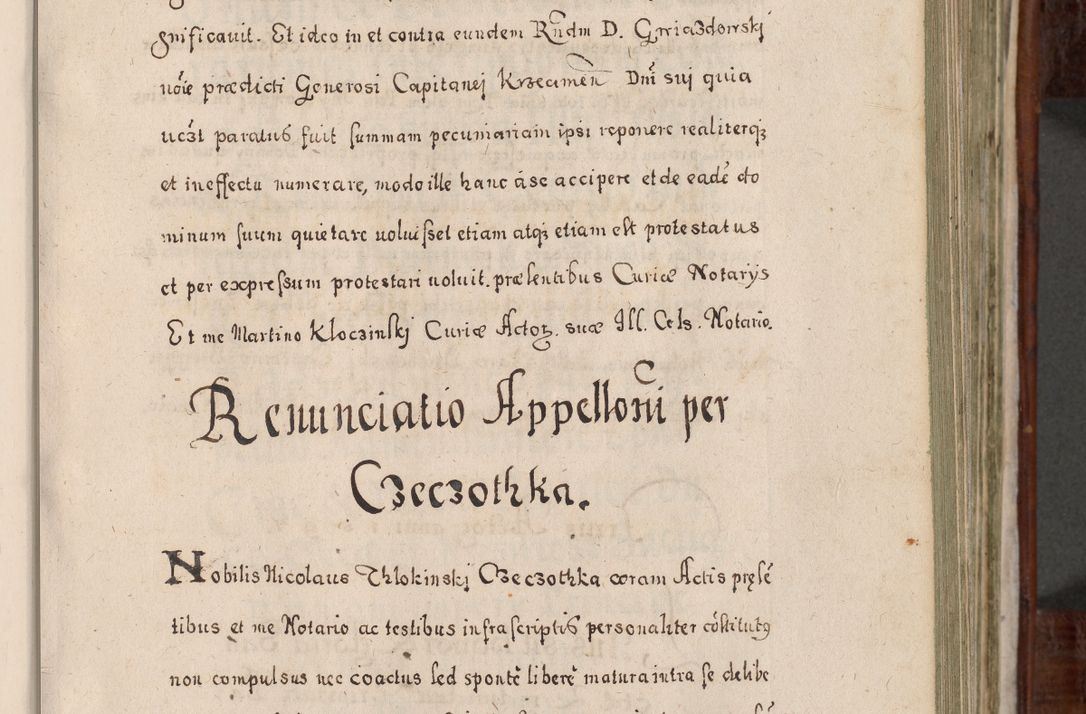 gnificavit. Et ideo in et contra eundem Rńdm D. Gwiazdowskj
nőíe prædicti Generosi Capitanej Krzecimeń Dńi sui quia
uczt paratus fuit summam pecuniariam ipsi reponere realiterqz
et in effectu numerare, modo ille hanc á se accipere et de eadē do
minum suum quietare voluisset etiam atqz etiam est protestatus
et per expressum protestari voluit. præsentibus Curiæ Notarÿs
Et me Martino Kłoczinskj Curiæ Actoꝝ. suæ Ill. Cels. Notario.
Renunciatio Appellońi per
Czeczothka.
Nobilis Nicolaus Thlokinskj Czeczothka coram Actis pręsē
tibus et me Notario ac testibus infrascriptis personaliter cōstitutꝯ
non compulsus nec coactus sed spontē liberē matura intra se delibe